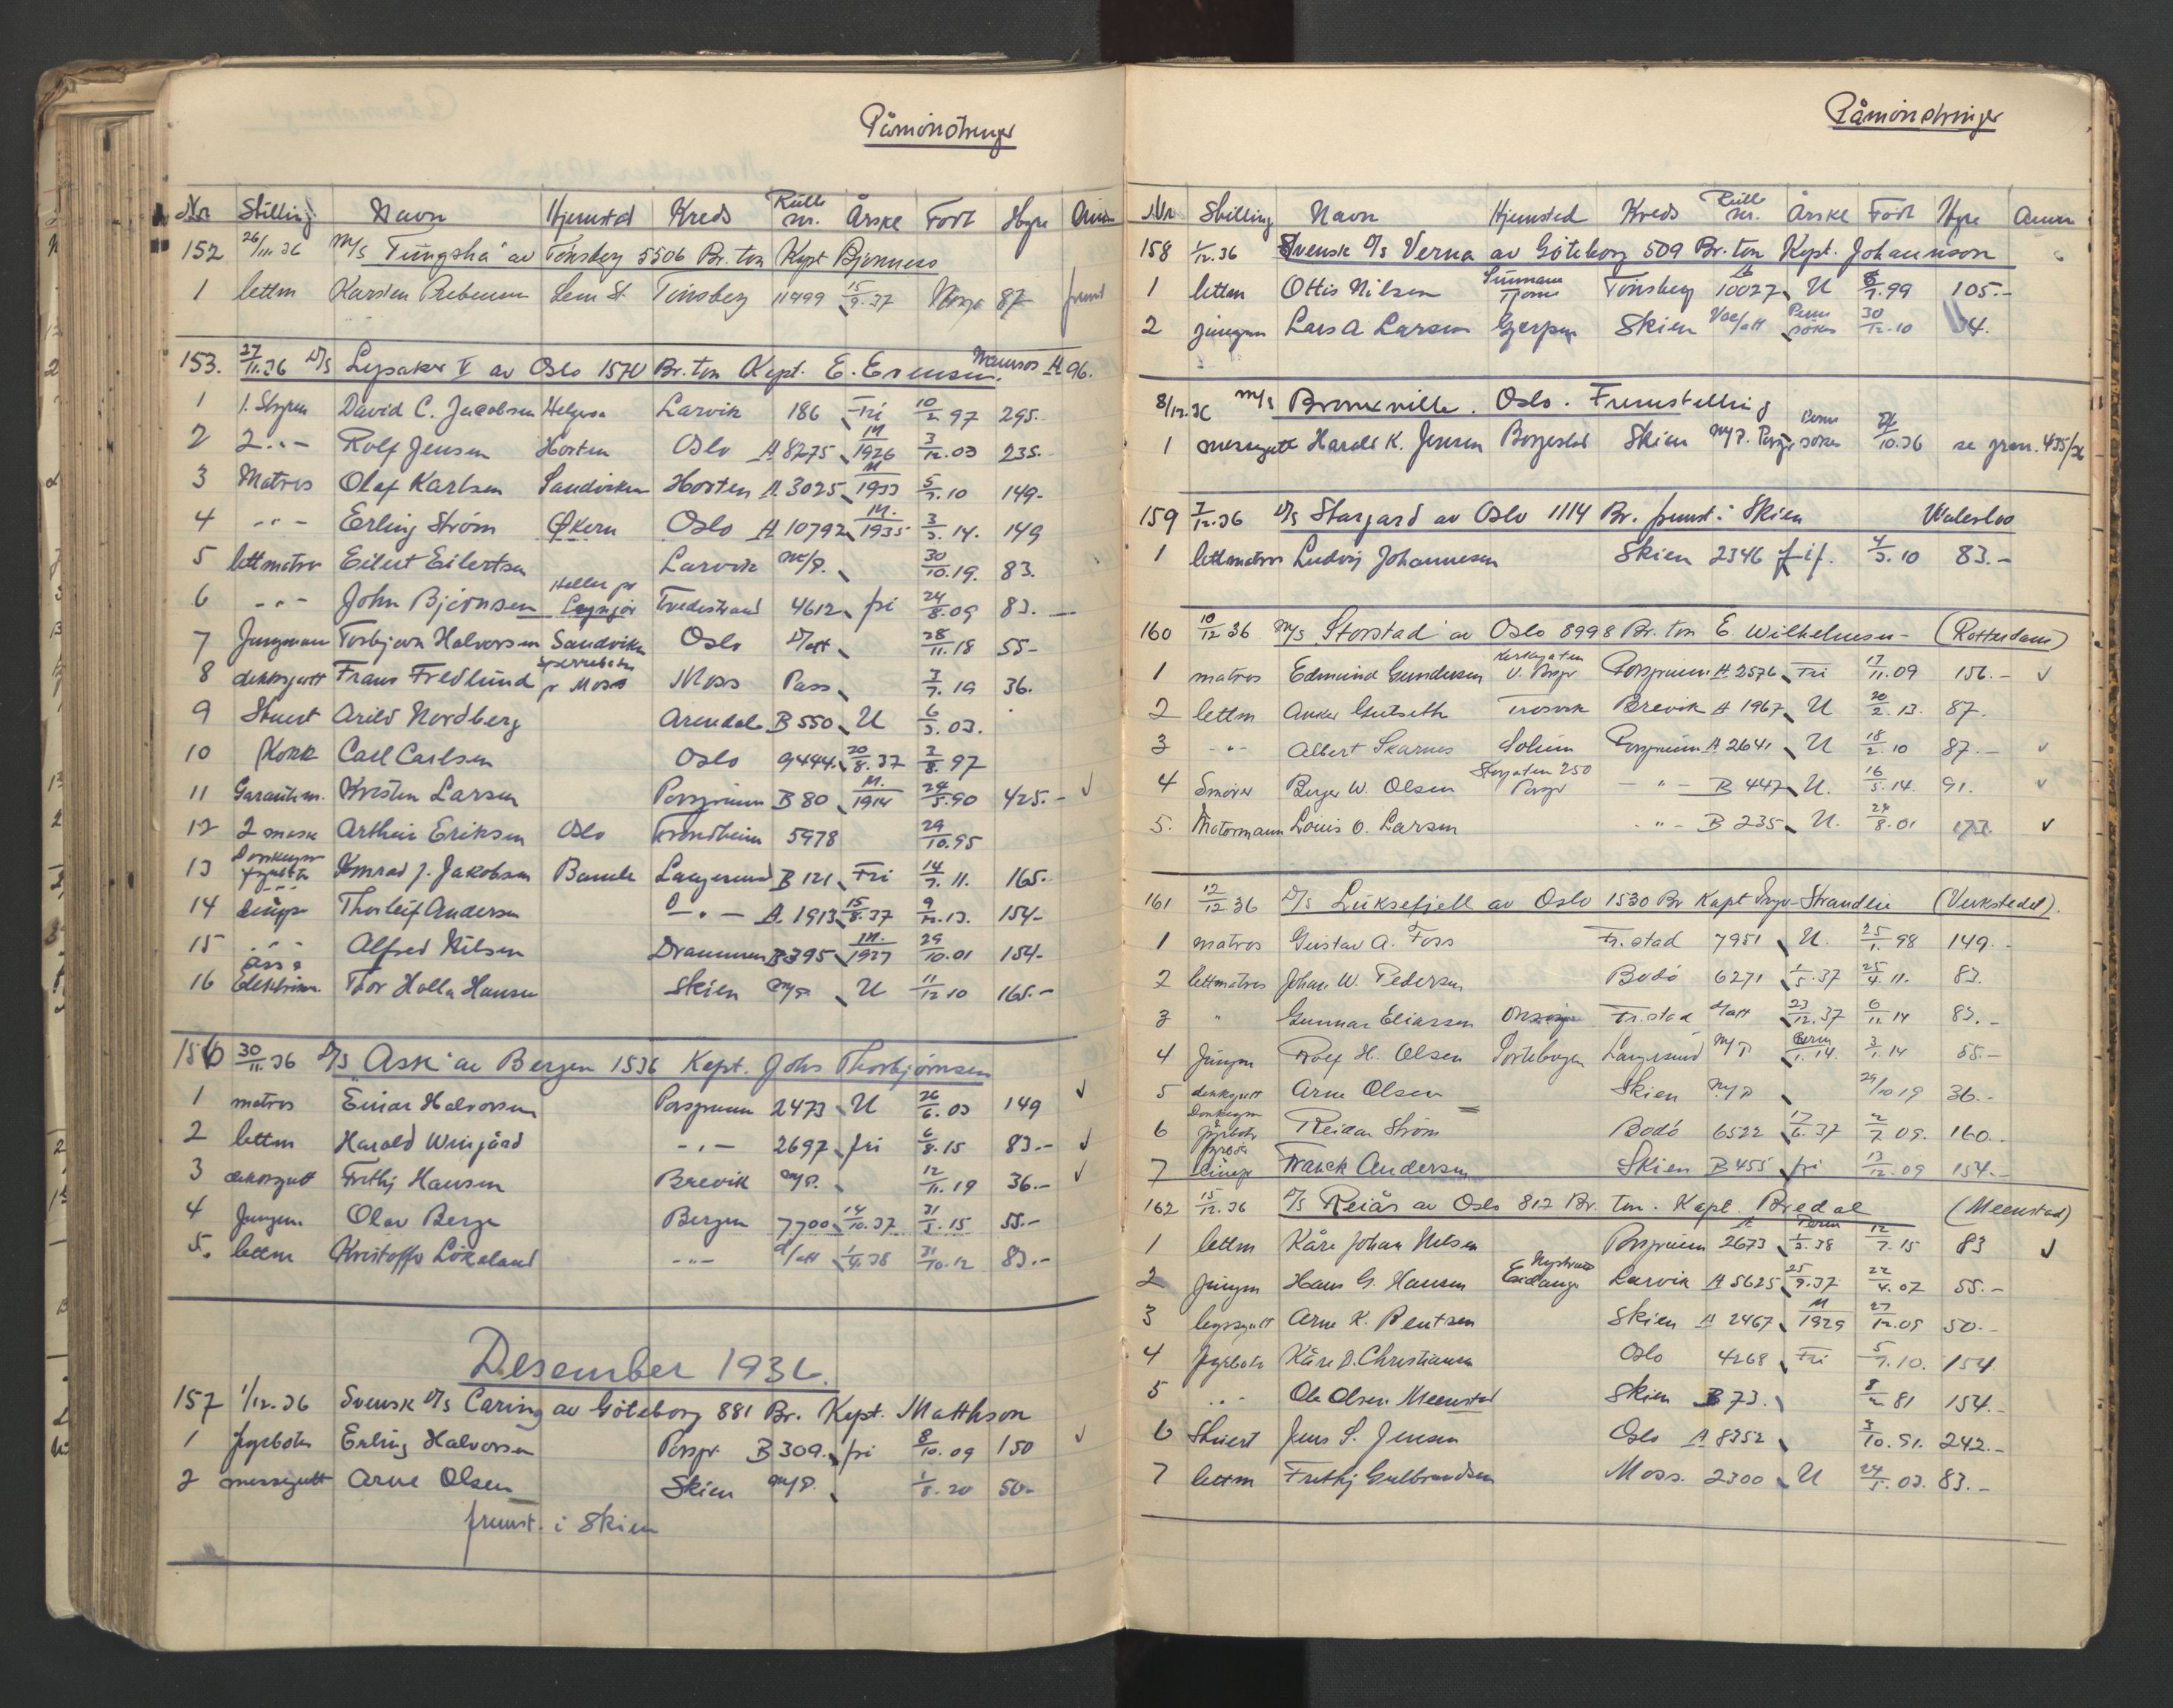 Påmönstringer
Nr Stilling Navn Hjemsted Kreds Rulle nr. Årskl Född Hyre Anm
152 26/11.36 M/s "Tungsha" av Tönsberg 5506 Br. ton Kapt Bjönness
1 lettm Karsten Sem St. Tönsberg 11499 15/9.37 Norge 87
153. 27/11.36 D/s Lysaker V av Oslo 1570 Br. ton Kapt. E. Evensen. A 96.
1 1. Styrm David C. Jacobsen Larvik 186 Fri 10/2 97 295.-
2 2 -"- Rolf Jensen Horten Oslo A 8275 M/1926 3/12.03 235.-
3 Matros Olaf Karlsen Sandviken Horten A 3025 M/1933 5/7.10 149-
4 -"- Erling Ström Økern Oslo A 10792 M./1935 3/3.14. 149
5 lettmatros Eilert Eilertsen Larvik m/P. 30/10.19. 83.
6 -"- John Björnsen Lyngør Tvedestrand 4612 fri 24/8.09 83.
7 Jungman Torbjørn Halvorsen Sandviken Oslo D/att 28/11.18 55-
8 dekksgutt Frans Fredlund pr Moss Moss Pass 3/7.19 36.
9 Stuert Arild Nordberg Arendal B 550 U 6/3.03.
10 Kokk Carl Carlsen Oslo 9494. 20/8.37 2/8.97
11 Garantim. Kristen Larsen Porsgrunn B 80 M./1914 24/5.90 425.-
12 2 mask Arthur Eriksen Oslo Trondheim 5978 29/10.95
13 Donkeym fyrböter Konrad J. Jakobsen Bamble Langesund B 121 Fri 14/7.11. 165.-
14 lemper Thorleif Andersen -"- A. 1913 15/8.37 9/12.13. 154-
15 -"- Alfred Nilsen Drammen B 395 M./1927 29/10.01 154-
16 ass. Elektriker Thor Holla Hansen Skien m/P. U 11/12 10 165.-
156 30/11.36 D/s "Ask" av Bergen 1536 Kapt. Johs Thorbjørnsen
1 matros Einar Halvorsen Porsgrunn 2473 U 26/6.03 149
2 lettm Harald -"- 2697 fri 6/8.15 83.-
3 dekksgutt Frithj Hansen Brevik m/P. 12/11.19 36.-
4 Jungm. Olav Berge Bergen 7700 14/10.37 31/5.15 55.-
5. lettm Kristoffer Lökeland -"- D/att 1/4.38 31/10.12 83.-
Desember 1936.
157 1/12.36 Svensk D/s Caring av Göteborg 881 Br. Kapt. Matthson
1 fyrböter Erling Halvorsen Porsgr. B 309. fri 8/10.09 150
2 messegutt Arne Olsen Skien m/P. 1/8.20 50-
fremst. i Skien
Påmönstringer
Nr Stilling Navn Hjemsted Kreds Rulle nr. Årskl Född Hyre Anm
158 1/12.36 Svensk D/s Verna av Göteborg 509 Br. ton Kapt. Johannson
1 lettm Ottis Nilsen Tjöme Tönsberg 10027 U 8/7.99 105.-
2 jungm Lars A Larsen Gjerpen Skien 30/12.10
8/12.36 m/s Bronxville. Oslo. Fremstilling
1 messegutt Harald K. Jensen Borgestad Skien 10.36 435/36
159 7/12.36 D/s Stargard av Oslo 1114 Br. fremst. i Skien Waterloo
1 lettmatros Ludvig Johannesen Skien 2346 f.i.f. 4/3.10 83.-
160 10/12 36 M/s "Storstad" av Oslo 8998 Br. ton E. Wilhelmsen - (Rotterdam)
1 matros Edmund Gundersen Kirkegaten V. Porsgr Porsgrunn A 2576 Fri 17/11.09 156.-
2 lettm Anker Gutseth Trosvik Brevik A 1967 U 20/2.13. 87.
3 -"- Albert Skarnes Solum Porsgrunn A 2641 U 18/2.10 87.-
4 Smører Birger W. Olsen Storgaten 250 Porsgr -"- B 447 U. 16/5.14. 91.
5. Motormann Louis O. Larsen -"- B 235 U. 24/8.01
161 12/12 36 D/s Luksefjell av Oslo 1530 Br Kapt Strandlie (Verkstedet).
1 matros Gustav A. Foss Fr.stad 7951 U. 25/1.98 149.-
2 lettmatros Johan W. Pedersen Bodö 6271 1/5.37 25/4.11. 83.
3 " Gunnar Eliassen Onsøy Fr.stad D/att 23/12.37 6/11 14 83.-
4 Jungm Rolf H. Olsen Langesund m/P 3/1.14 55.-
5 dekksgutt Arne Olsen Skien m/P 29/10 19 36.-
6 Donkeym fyrböter Reidar Ström Bodö 6522 17/6.37 2/7 09. 160.
7 fyrböter lemper Franck Andersen Skien B 455 fri 13/12.09 154.-
162 15/12.36 D/s Reiås av Oslo 812 Br. ton. Kapt. Bredal (Meenstad)
1 lettm Kåre Johan Nilsen Porsgrunn A 2673 Perm 1/3.38 12/7.15 83
2 Jungm Hans G. Hansen Nystrand Eidanger Larvik A 5625 25/9.37 22/4.07 55.-
3 byssgutt Arne K. Bentzen Skien A 2467 M/1929 27/12.09 50.-
4 fyrböter Kåre D. Christiansen Oslo 4268 Fri 5/9.10. 154.
5 -"- Ole Olsen Meenstad Skien B 73. 8/2 81 154.-
6 Stuert Jens S. Jensen Oslo A 8352 3/10.91. 242.-
7 lettm Frithj Gulbrandsen Moss. 2300 U 24/5.03. 83.-